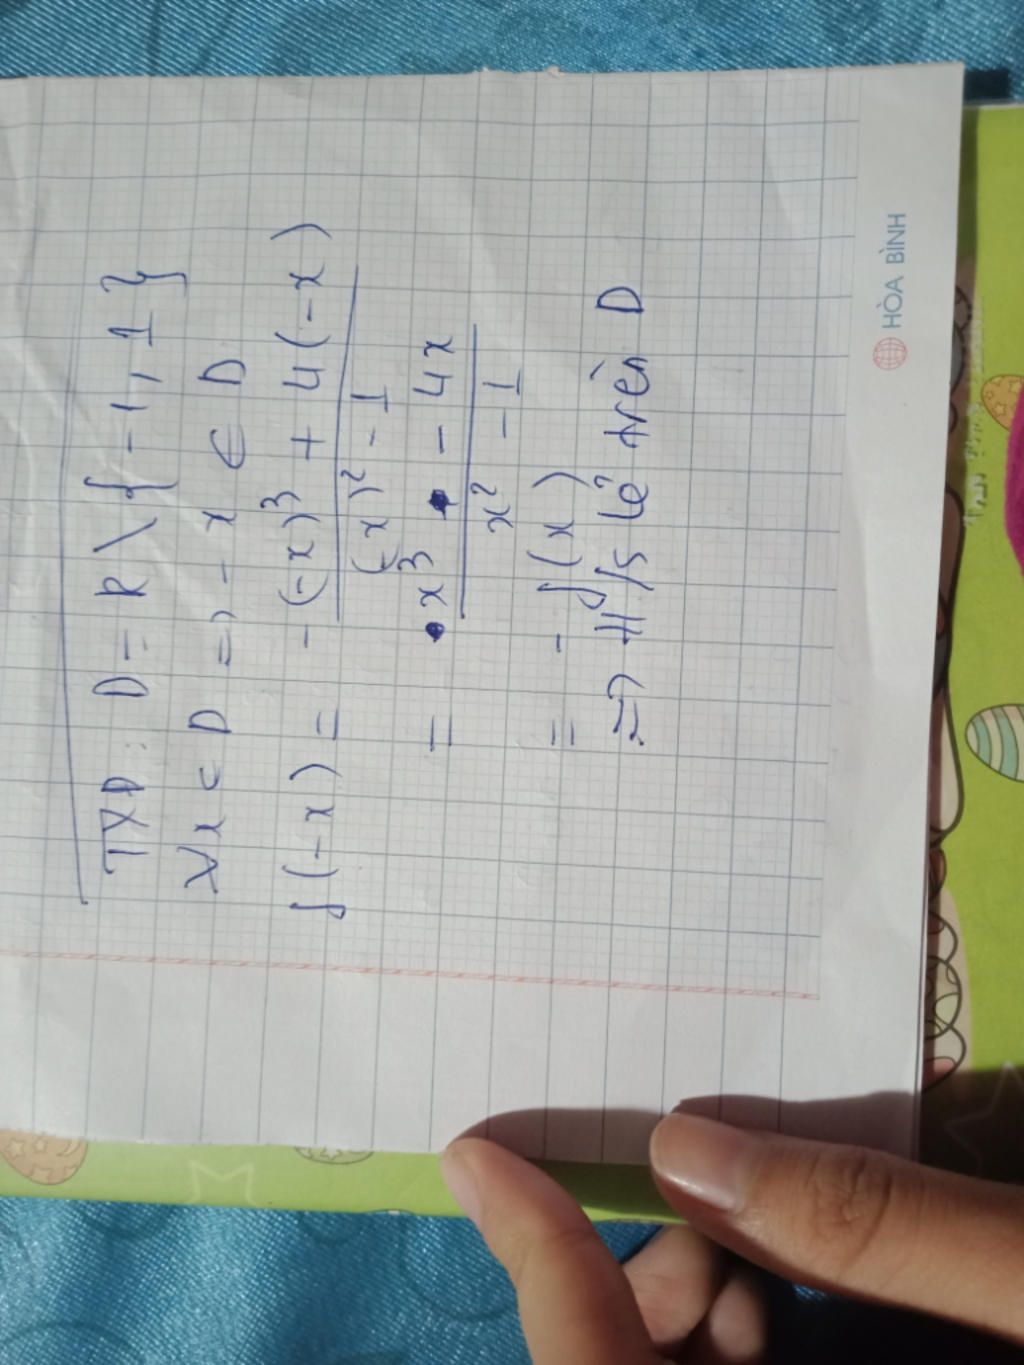 TXĐ: D = R \ { -1, 1 }
∀x ∈ D => - x ∈ D
f(-x) = -(-x)³ + 4(-x)
(-x)² - 1
= x³ - 4x
x² - 1
= - f(x)
=> H/s lẻ trên D
HÒA BÌNH